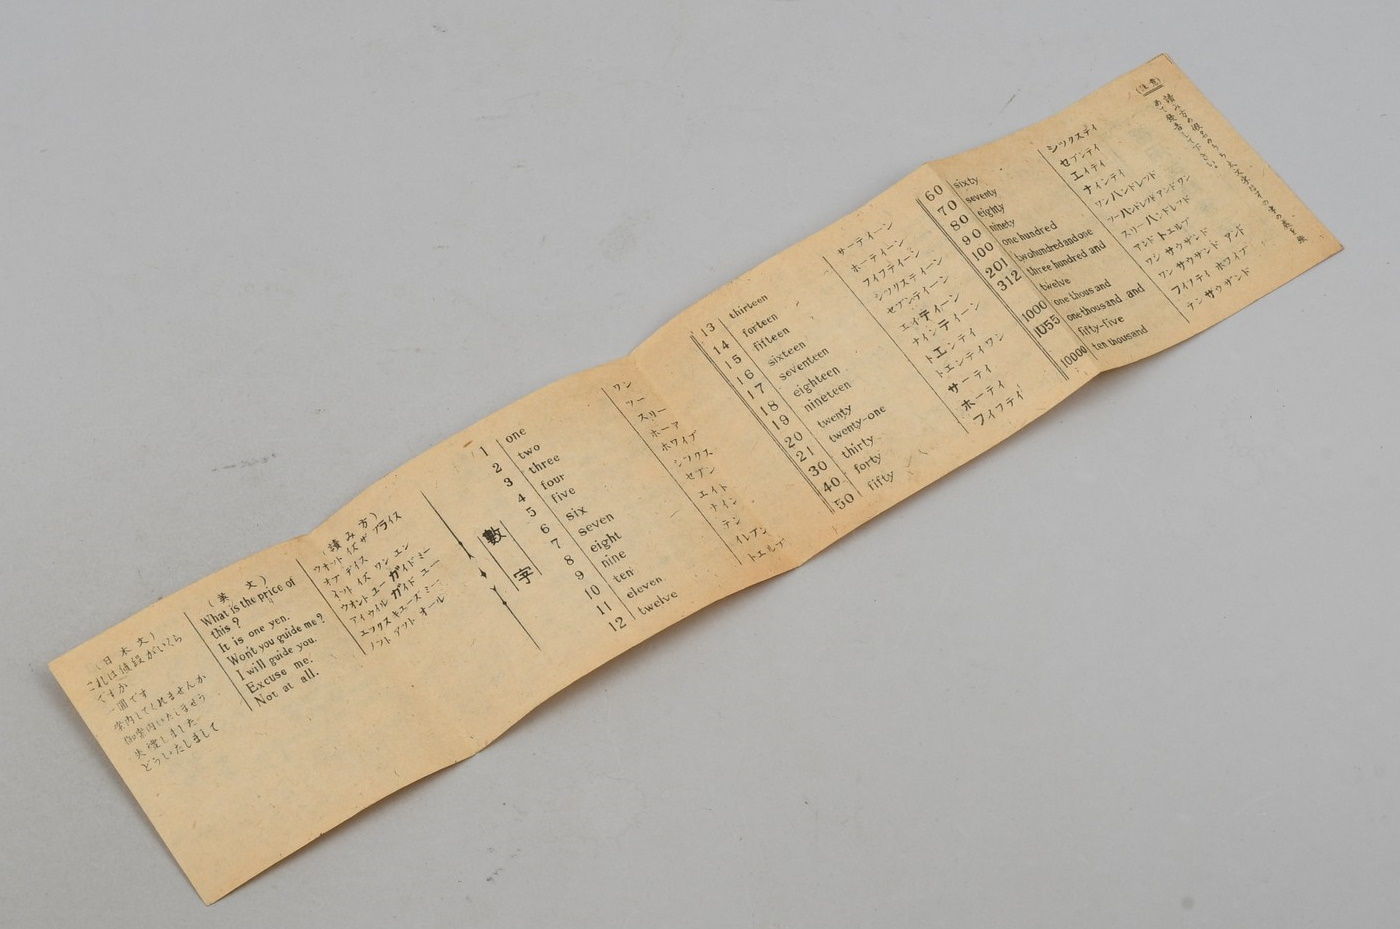 (日本文)
これは値段がいくら
ですか
一圓です
案内してくれませんか
御案内いたしませう
失禮しました
どういたしまして
(英文)
What is the price of
this?
It is one yen.
Won't you guide me?
I will guide you.
Excuse me.
Not at all.
(讀み方)
ウオット イズ ザ プライス
オブ デイス
イット イズ ワン エン
ウオント ユー ガイド ミー
アイ ウイル ガイド ユー
エツクス キユーズ ミー
ノツト アツト オール
數字
1 one ワン
2 two ツー
3 three スリー
4 four ホーア
5 five ホワイブ
6 six シツクス
7 seven セブン
8 eight エイト
9 nine ナイン
10 ten テン
11 eleven イレブン
12 twelve トエルブ
13 thirteen サーティーン
14 forteen ホーティーン
15 fifteen フイフティーン
16 sixteen シツクスティーン
17 seventeen セブンティーン
18 eighteen エイティーン
19 nineteen ナインティーン
20 twenty トエンテイ
21 twenty-one トエンテイワン
30 thirty サーテイ
40 forty ホーテイ
50 fifty フイフテイ
60 sixty シツクステイ
70 seventy セブンテイ
80 eighty エイテイ
90 ninety ナインテイ
100 one hundred ワンハンドレッド
201 two hundred and one ツーハンドレッドアンドワン
312 three hundred and スリーハンドレッド
twelve アンドトエルブ
1000 one thousand ワン サウザンド
1055 one thousand and ワン サウザンド アンド
fifty-five フイフテイ ホワイブ
10000 ten thousand テン サウザンド
(注意)
讀み方の假名のうち大文字はその字の
あと發音して下さい